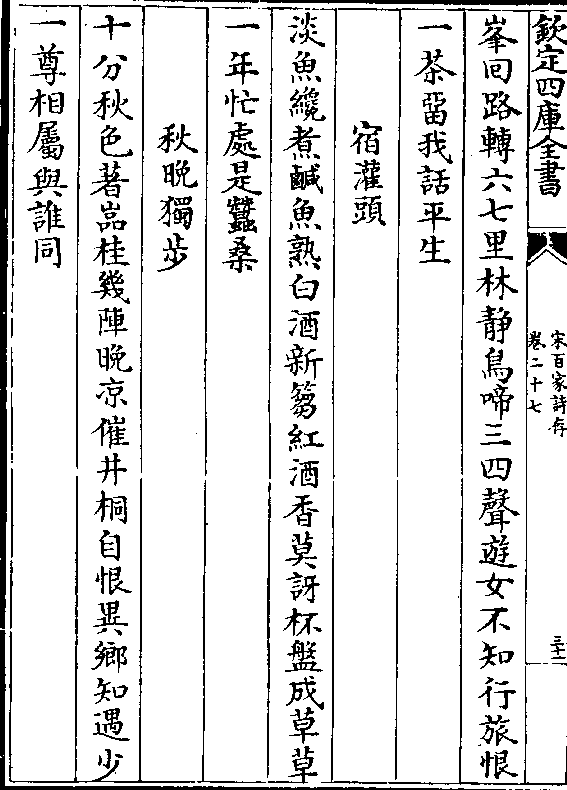 欽定四庫全書
宋百家詩存
卷二十七
三十一
峯回路轉六七里林静鳥啼三四聲遊女不知行旅恨
一茶畱我話平生
宿灌頭
淡魚纔煮鹹魚熟白酒新篘紅酒香莫訝杯盤成草草
一年忙處是蠶桑
秋晚獨步
十分秋色著嵓桂幾陣晚凉催井桐自恨異鄉知遇少
一尊相屬與誰同